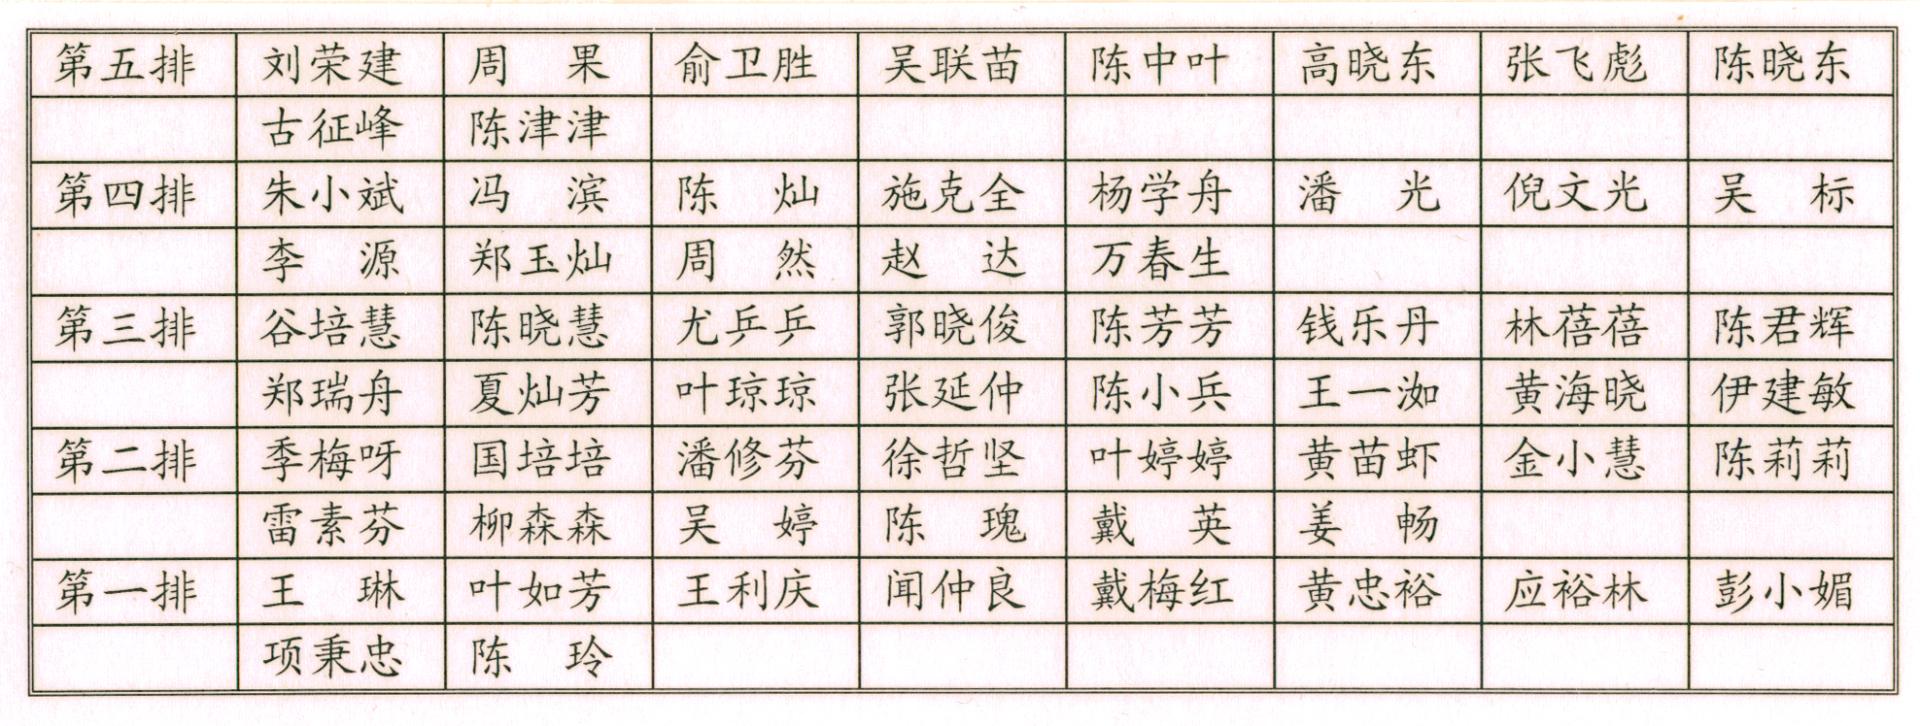 第五排 刘荣建 周 果 俞卫胜 吴联苗 陈中叶 高晓东 张飞彪 陈晓东
古征峰 陈津津
第四排 朱小斌 冯 滨 陈 灿 施克全 杨学舟 潘 光 倪文光 吴 标
李 源 郑玉灿 周 然 赵 达 万春生
第三排 谷培慧 陈晓慧 尤乒乒 郭晓俊 陈芳芳 钱乐丹 林蓓蓓 陈君辉
郑瑞舟 夏灿芳 叶琼琼 张延仲 陈小兵 王一洳 黄海晓 伊建敏
第二排 季梅呀 国培培 潘修芬 徐哲坚 叶婷婷 黄苗虾 金小慧 陈莉莉
雷素芬 柳森森 吴 婷 陈 瑰 戴 英 姜 畅
第一排 王 琳 叶如芳 王利庆 闻仲良 戴梅红 黄忠裕 应裕林 彭小媚
项秉忠 陈 玲